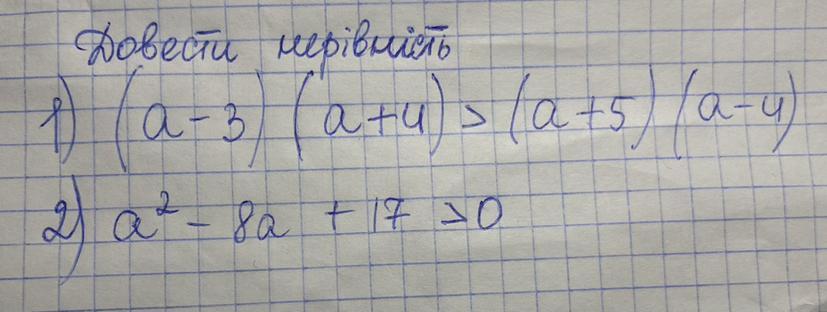 Довести нерівність
1) (a-3)(a+4)>(a+5)(a-4)
2) a²-8a+17>0